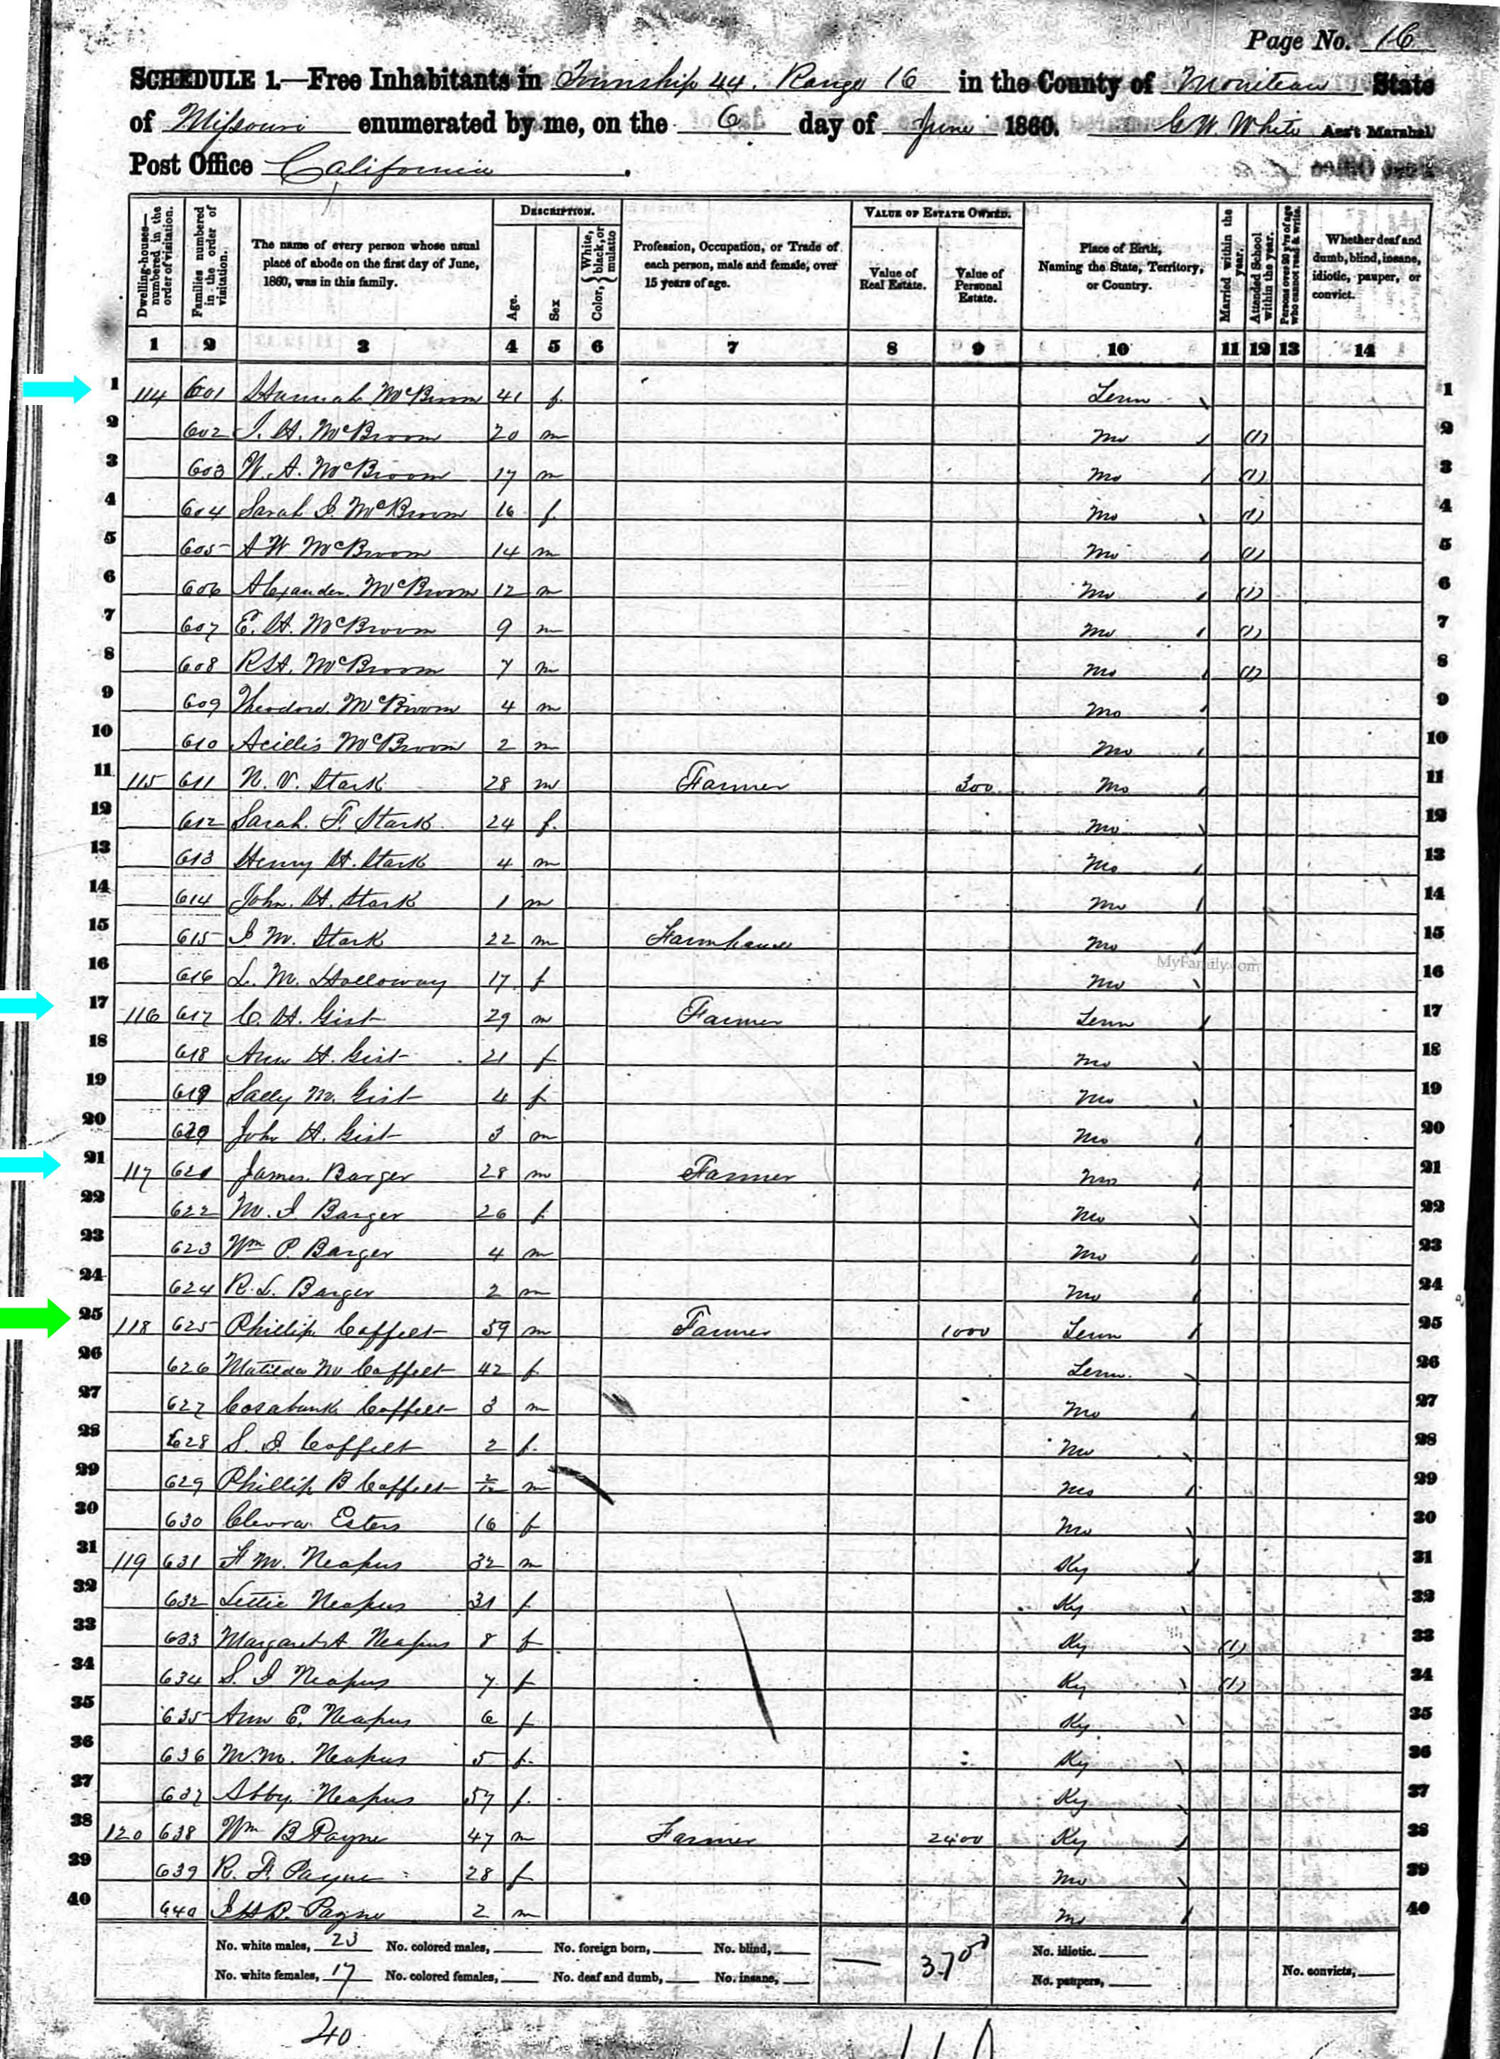 Page No. 16
SCHEDULE 1.—Free Inhabitants in Township 44. Range 16 in the County of Moniteau State
of Missouri enumerated by me, on the 6 day of June 1860. G W White Ass't Marshal
Post Office California.
Dwelling-houses—numbered in the order of visitation.
Families numbered in the order of visitation.
The name of every person whose usual place of abode on the first day of June, 1860, was in this family.
DESCRIPTION.
Age.
Sex
Color, { White, black, or mulatto
Profession, Occupation, or Trade of each person, male and female, over 15 years of age.
VALUE OF ESTATE OWNED.
Value of Real Estate.
Value of Personal Estate.
Place of Birth, Naming the State, Territory, or Country.
Married within the year.
Attended School within the year.
Persons over 20 y'rs of age who cannot read & write.
Whether deaf and dumb, blind, insane, idiotic, pauper, or convict.
1 2 3 4 5 6 7 8 9 10 11 12 13 14
1 114 601 Hannah McBroom 41 f Tenn 1
2 602 J. H. McBroom 20 m Mo (1) 2
3 603 W. A. McBroom 17 m Mo (1) 3
4 604 Sarah J. McBroom 16 f Mo (1) 4
5 605 A W McBroom 14 m Mo (1) 5
6 606 Alexander McBroom 12 m Mo (1) 6
7 607 E. H. McBroom 9 m Mo (1) 7
8 608 R H. McBroom 7 m Mo (1) 8
9 609 Theodord McBroom 4 m Mo 9
10 610 Acillis McBroom 2 m Mo 10
11 115 611 N. V. Stark 28 m Farmer 300 Mo 11
12 612 Sarah F. Stark 24 f. Mo 12
13 613 Henry H. Stark 4 m Mo 13
14 614 John. H. Stark 1 m Mo 14
15 615 J M. Stark 22 m Farmhand Mo 15
MyFamily.com
16 616 L. M. Holloway 17 f Mo 16
17 116 617 C. H. Gist 29 m Farmer Tenn 17
18 618 Ann H. Gist 21 f Mo 18
19 619 Sally M. Gist 4 f Mo 19
20 620 John H. Gist 3 m Mo 20
21 117 621 James Barger 28 m Farmer Mo 21
22 622 M. J Barger 26 f Mo 22
23 623 Wm P. Barger 4 m Mo 23
24 624 R. L. Barger 2 m Mo 24
25 118 625 Phillip Coffelt 59 m Farmer 1000 Tenn 25
26 626 Matilda M Coffelt 42 f Tenn. 26
27 627 Coffelt 3 m Mo 27
28 628 S. J. Coffelt 2 f. Mo 28
29 629 Phillip B Coffelt 2/12 m Mo 29
30 630 Esters 16 f Mo 30
31 119 631 M. Neapus 32 m Ky 31
32 632 Lettie Neapus 31 f Ky 32
33 633 Margaret A Neapus 8 f Ky (1) 33
34 634 S. J Neapus 7 f Ky (1) 34
35 635 Ann E. Neapus 6 f Ky 35
36 636 M. M. Neapus 5 f. Ky 36
37 637 Abby Neapus 57 f. Ky 37
38 120 638 Wm B Payne 47 m Farmer 2400 Ky 38
39 639 R. F. Payne 28 f Mo 39
40 640 Payne 2 m Mo 40
No. white males, 23 No. colored males, No. foreign born, No. blind, — 3700 No. idiotic.
No. white females, 17 No. colored females, No. deaf and dumb, No. insane, No. paupers, No. convicts,
40